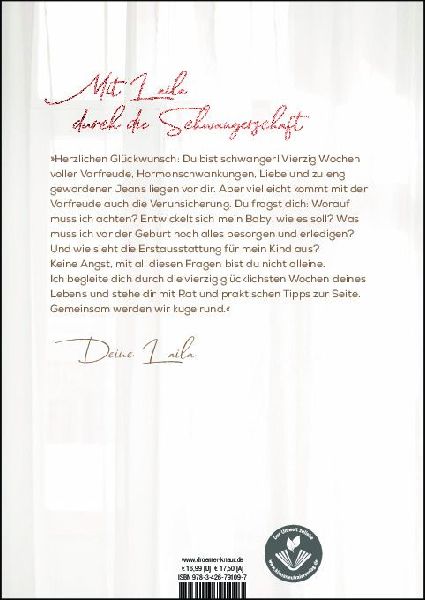 Mit Laila
durch die Schwangerschaft
»Herzlichen Glückwunsch: Du bist schwanger! Vierzig Wochen
voller Vorfreude, Hormonschwankungen, Liebe und zu eng
gewordener Jeans liegen vor dir. Aber vielleicht kommt mit der
Vorfreude auch die Verunsicherung. Du fragst dich: Worauf
muss ich achten? Entwickelt sich mein Baby, wie es soll? Was
muss ich vor der Geburt noch alles besorgen und erledigen?
Und wie sieht die Erstausstattung für mein Kind aus?
Keine Angst, mit all diesen Fragen bist du nicht alleine.
Ich begleite dich durch die vierzig glücklichsten Wochen deines
Lebens und stehe dir mit Rat und praktischen Tipps zur Seite.
Gemeinsam werden wir kugelrund.«
Deine Laila
Der Umwelt zuliebe
www.droemer-knaur.de
€ 16,99 [D] € 17,50 [A]
ISBN 978-3-426-79109-7